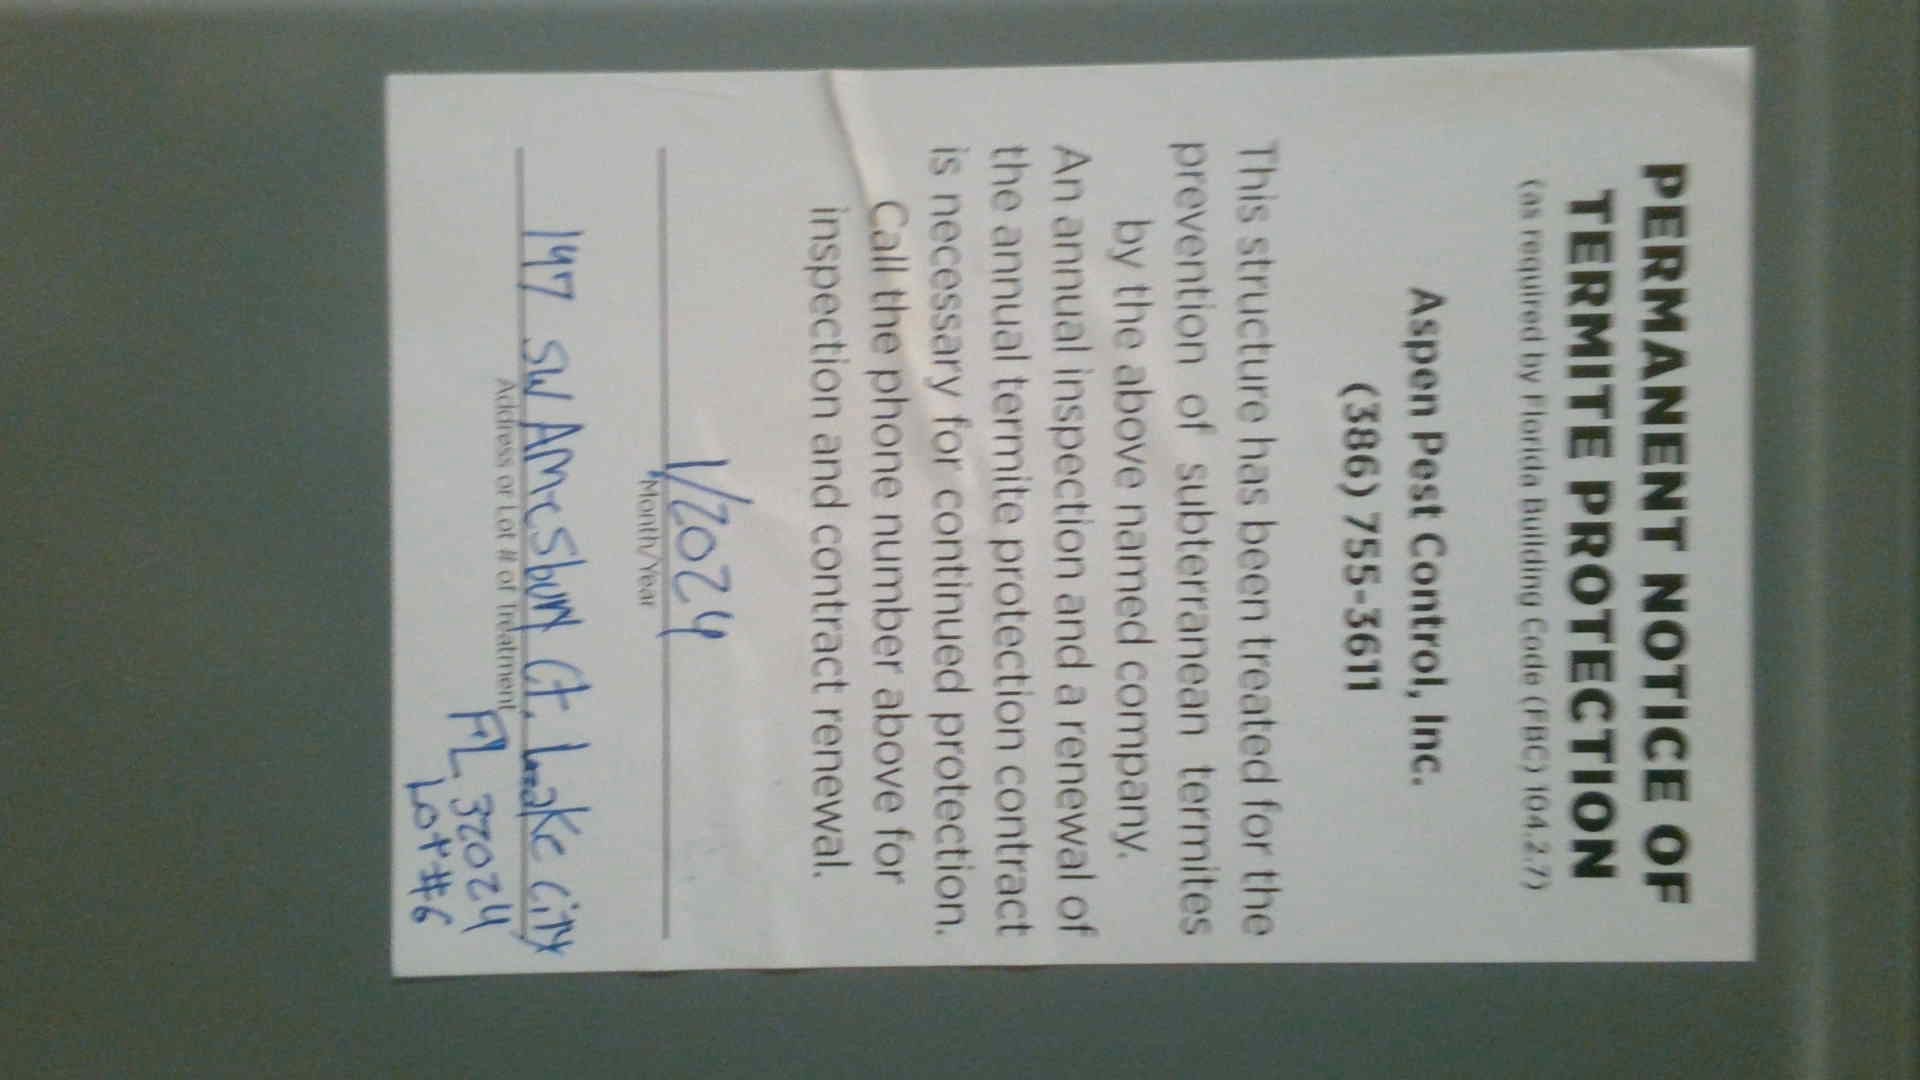 PERMANENT NOTICE OF
TERMITE PROTECTION
(as required by Florida Building Code (FBC) 104.2.7)
Aspen Pest Control, Inc.
(386) 755-3611
This structure has been treated for the
prevention of subterranean termites
by the above named company.
An annual inspection and a renewal of
the annual termite protection contract
is necessary for continued protection.
Call the phone number above for
inspection and contract renewal.
1/2024
Month/Year
147 SW AMesbury Ct. Lake City
Address or Lot # of Treatment
FL 32024
Lot#6